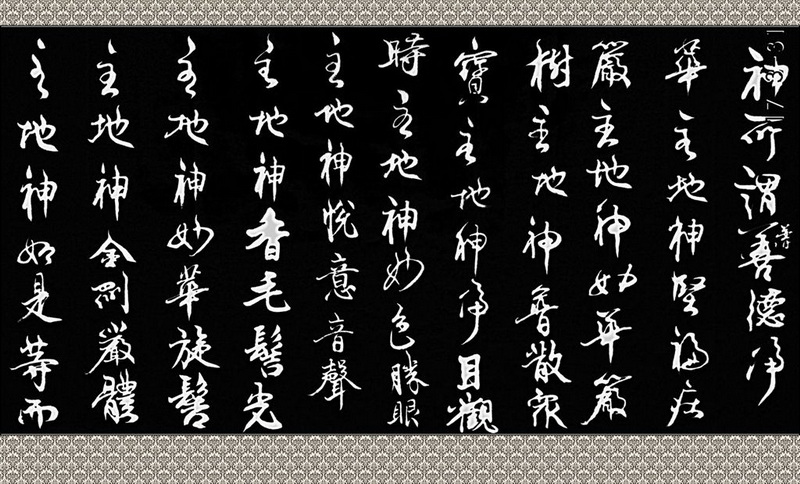 神所謂善德淨
華主地神堅福庄
嚴主地神妙華嚴
樹主地神普散眾
寶主地神淨目觀
時主地神妙色勝眼
主地神悅意音聲
主地神香毛髻光
主地神妙華旋髻
主地神金剛嚴體
主地神如是等而